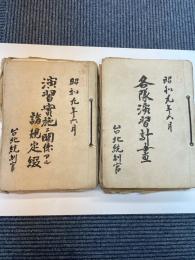 昭和九年六月
各隊演習計畫
台北統制官
昭和九年六月
演習實施ニ関係アル
諸規定綴
台北統制官